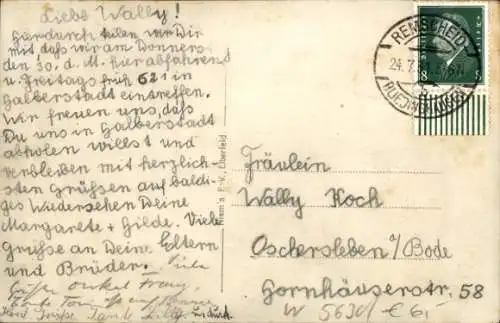 Liebe Wally!
Hierdurch teilen wir Dir
mit daß wir am Donners-
den 30. d. M. hier abfahren
u. Freitags früh 6 21 in
Halberstadt eintreffen.
Wir freuen uns, daß
Du uns in Halberstadt
abholen willst und
verbleiben mit herzlich-
sten Grüßen auf baldi-
ges Wiedersehen Deine
Margarete + Hilde. Viele
Grüße an Deine Eltern
und Brüder. Viele
Grüße onkel Franz,
Tante
Grüße Tante
REMSCHEID
24.7.
8 8
Fräulein
Wally Koch
Oschersleben a/Bode
Hornhäuserstr. 58
W 5630 € 6,-